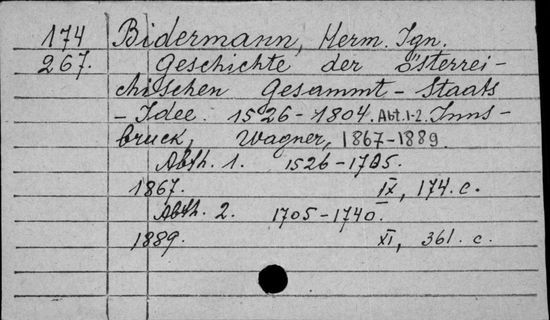 174 Bidermann, Herm. Ign.
267. Geschichte der österrei-
chischen Gesammt-Staats
-Idee. 1526-1804. Abt.1-2. Inns-
bruck, Wagner, 1867-1889
Abth. 1. 1526-1705.
1867. IX, 174. c.
Abth. 2. 1705-1740.
1889. XI, 361. c.